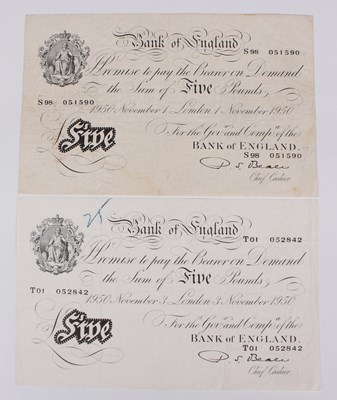 Bank of England
S98 051590
I Promise to pay the Bearer on Demand
S98 051590 the Sum of Five Pounds
1950 November 1 London 1 November 1950
For the Govr. and Compa. of the
Five BANK OF ENGLAND.
S98 051590
P S Beale
Chief Cashier
25
Bank of England
T01 052842
I Promise to pay the Bearer on Demand
the Sum of Five Pounds
T01 052842
1950 November 3 London 3 November 1950
For the Govr. and Compa. of the
Five BANK OF ENGLAND.
T01 052842
P S Beale
Chief Cashier